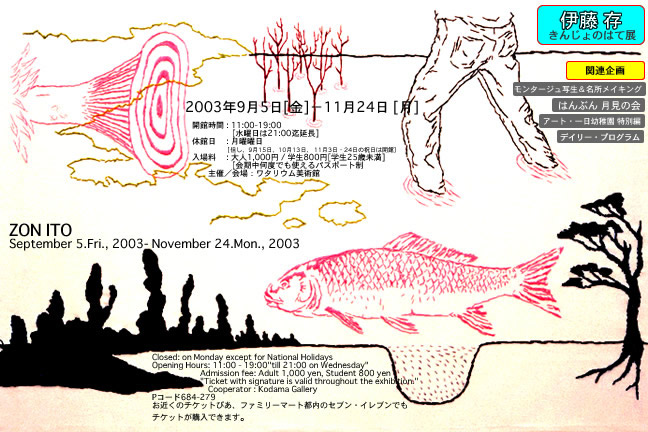 伊藤 存
きんじょのはて展
関連企画
モンタージュ写生＆名所メイキング
はんぶん 月見の会
アート・一日幼稚園 特別編
デイリー・プログラム
2003年9月5日[金]－11月24日 [月]
開館時間：11:00-19:00
[水曜日は21:00迄延長]
休館日　：月曜曜日
[但し、9月15日、10月13日、11月3日・24日の祝日は開館]
入場料　：大人1,000円 / 学生800円[学生25歳未満]
[会期中何度でも使えるパスポート制
主催／会場：ワタリウム美術館
ZON ITO
September 5.Fri., 2003- November 24.Mon., 2003
Closed: on Monday except for National Holidays
Opening Hours: 11:00 - 19:00"till 21:00 on Wednesday"
Admission fee: Adult 1,000 yen, Student 800 yen
"Ticket with signature is valid throughout the exhibition."
Cooperator : Kodama Gallery
Pコード684-279
お近くのチケットぴあ、ファミリーマート都内のセブン・イレブンでも
チケットが購入できます。